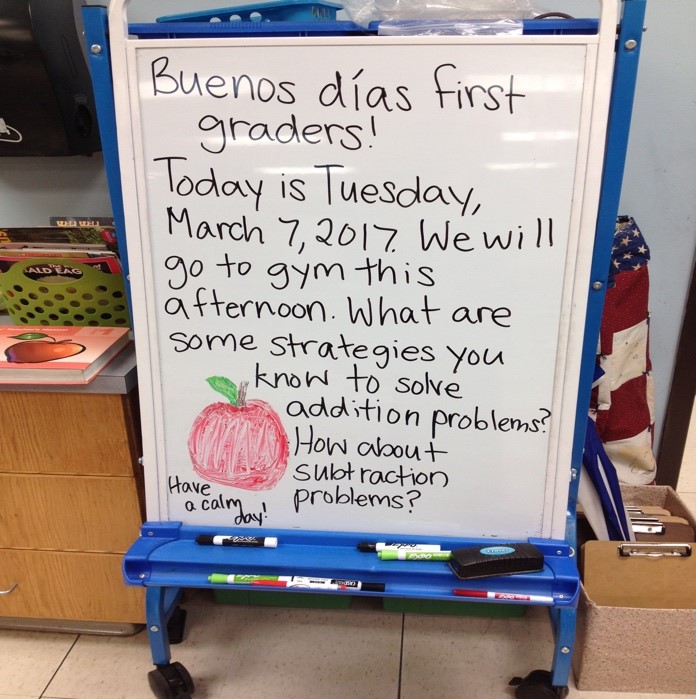 Buenos días first
graders!
Today is Tuesday,
March 7, 2017. We will
go to gym this
afternoon. What are
some strategies you
know to solve
addition problems?
How about
subtraction
problems?
Have
a calm
day!